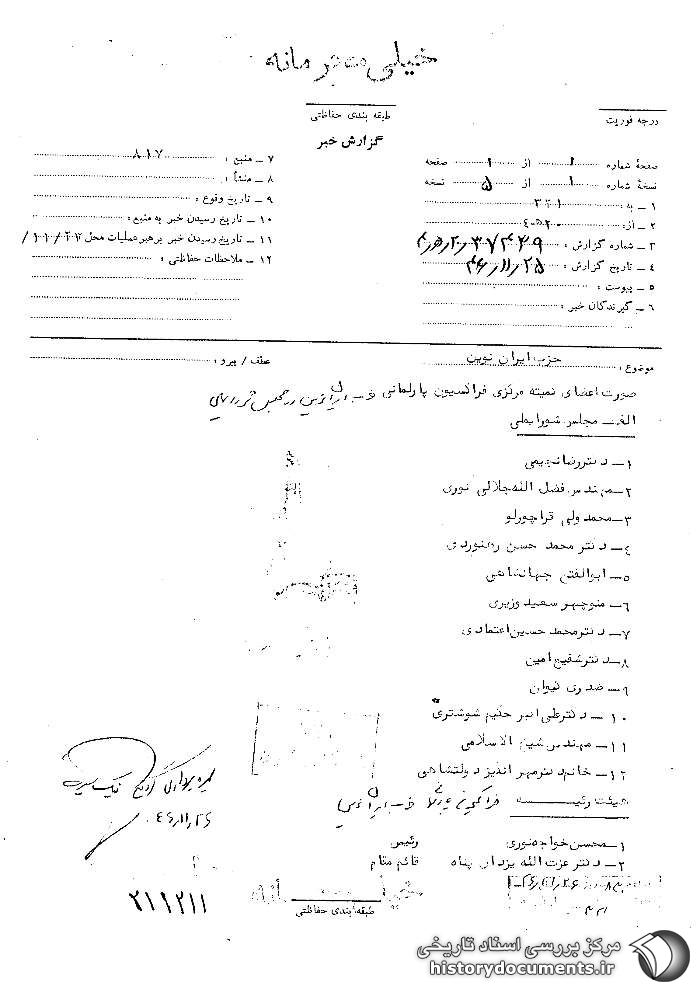 خیلی محرمانه
طبقه بندی حفاظتی
درجه فوریت
گزارش خبر
صفحهٔ شماره ۱ از ۱ صفحه
نسخهٔ شماره ۱ از ۵ نسخه
۱ ـ به : ۳۲۱
۲ ـ از :
۳ ـ شماره گزارش :
۴ ـ تاریخ گزارش : ۴۶/۱۱/۲۵
۵ ـ پیوست :
۶ ـ گیرندگان خبر :
۷ ـ منبع : ۸۱۷
۸ ـ منشأ :
۹ ـ تاریخ وقوع :
۱۰ ـ تاریخ رسیدن خبر به منبع :
۱۱ ـ تاریخ رسیدن خبر برهبر عملیات محل ۱۱/۲۳/
۱۲ ـ ملاحظات حفاظتی :
موضوع : حزب ایران نوین
عطف / پیرو :
صورت اعضای کمیته مرکزی فراکسیون پارلمانی حزب ایران نوین در مجلس
الف ـ مجلس شورایملی
۱ ـ دکتر رضا نجیمی
۲ ـ مهندس فضل الله جلالی نوری
۳ ـ محمد ولی قراچورلو
۴ ـ دکتر محمد حسن رهنوردی
۵ ـ ابوالفتح جهانشاهی
۶ ـ منوچهر سعید وزیری
۷ ـ دکتر محمد حسین اعتمادی
۸ ـ دکتر شفیع امین
۹ ـ صدری کیوان
۱۰ ـ دکتر علی اکبر حکیم شوشتری
۱۱ ـ مهندس شیخ الاسلامی
۱۲ ـ خانم دکتر مهر انگیز دولتشاهی
هیئت رئیسه فراکسیون پارلمانی حزب ایران نوین
۱ ـ محسن خواجه نوری رئیس
۲ ـ دکتر عزت الله یزدان پناه قائم مقام
۴۶/۱۱/۲۶
۲۱۹۲۱۱
طبقه بندی حفاظتی
مرکز بررسی اسناد تاریخی
historydocuments.ir